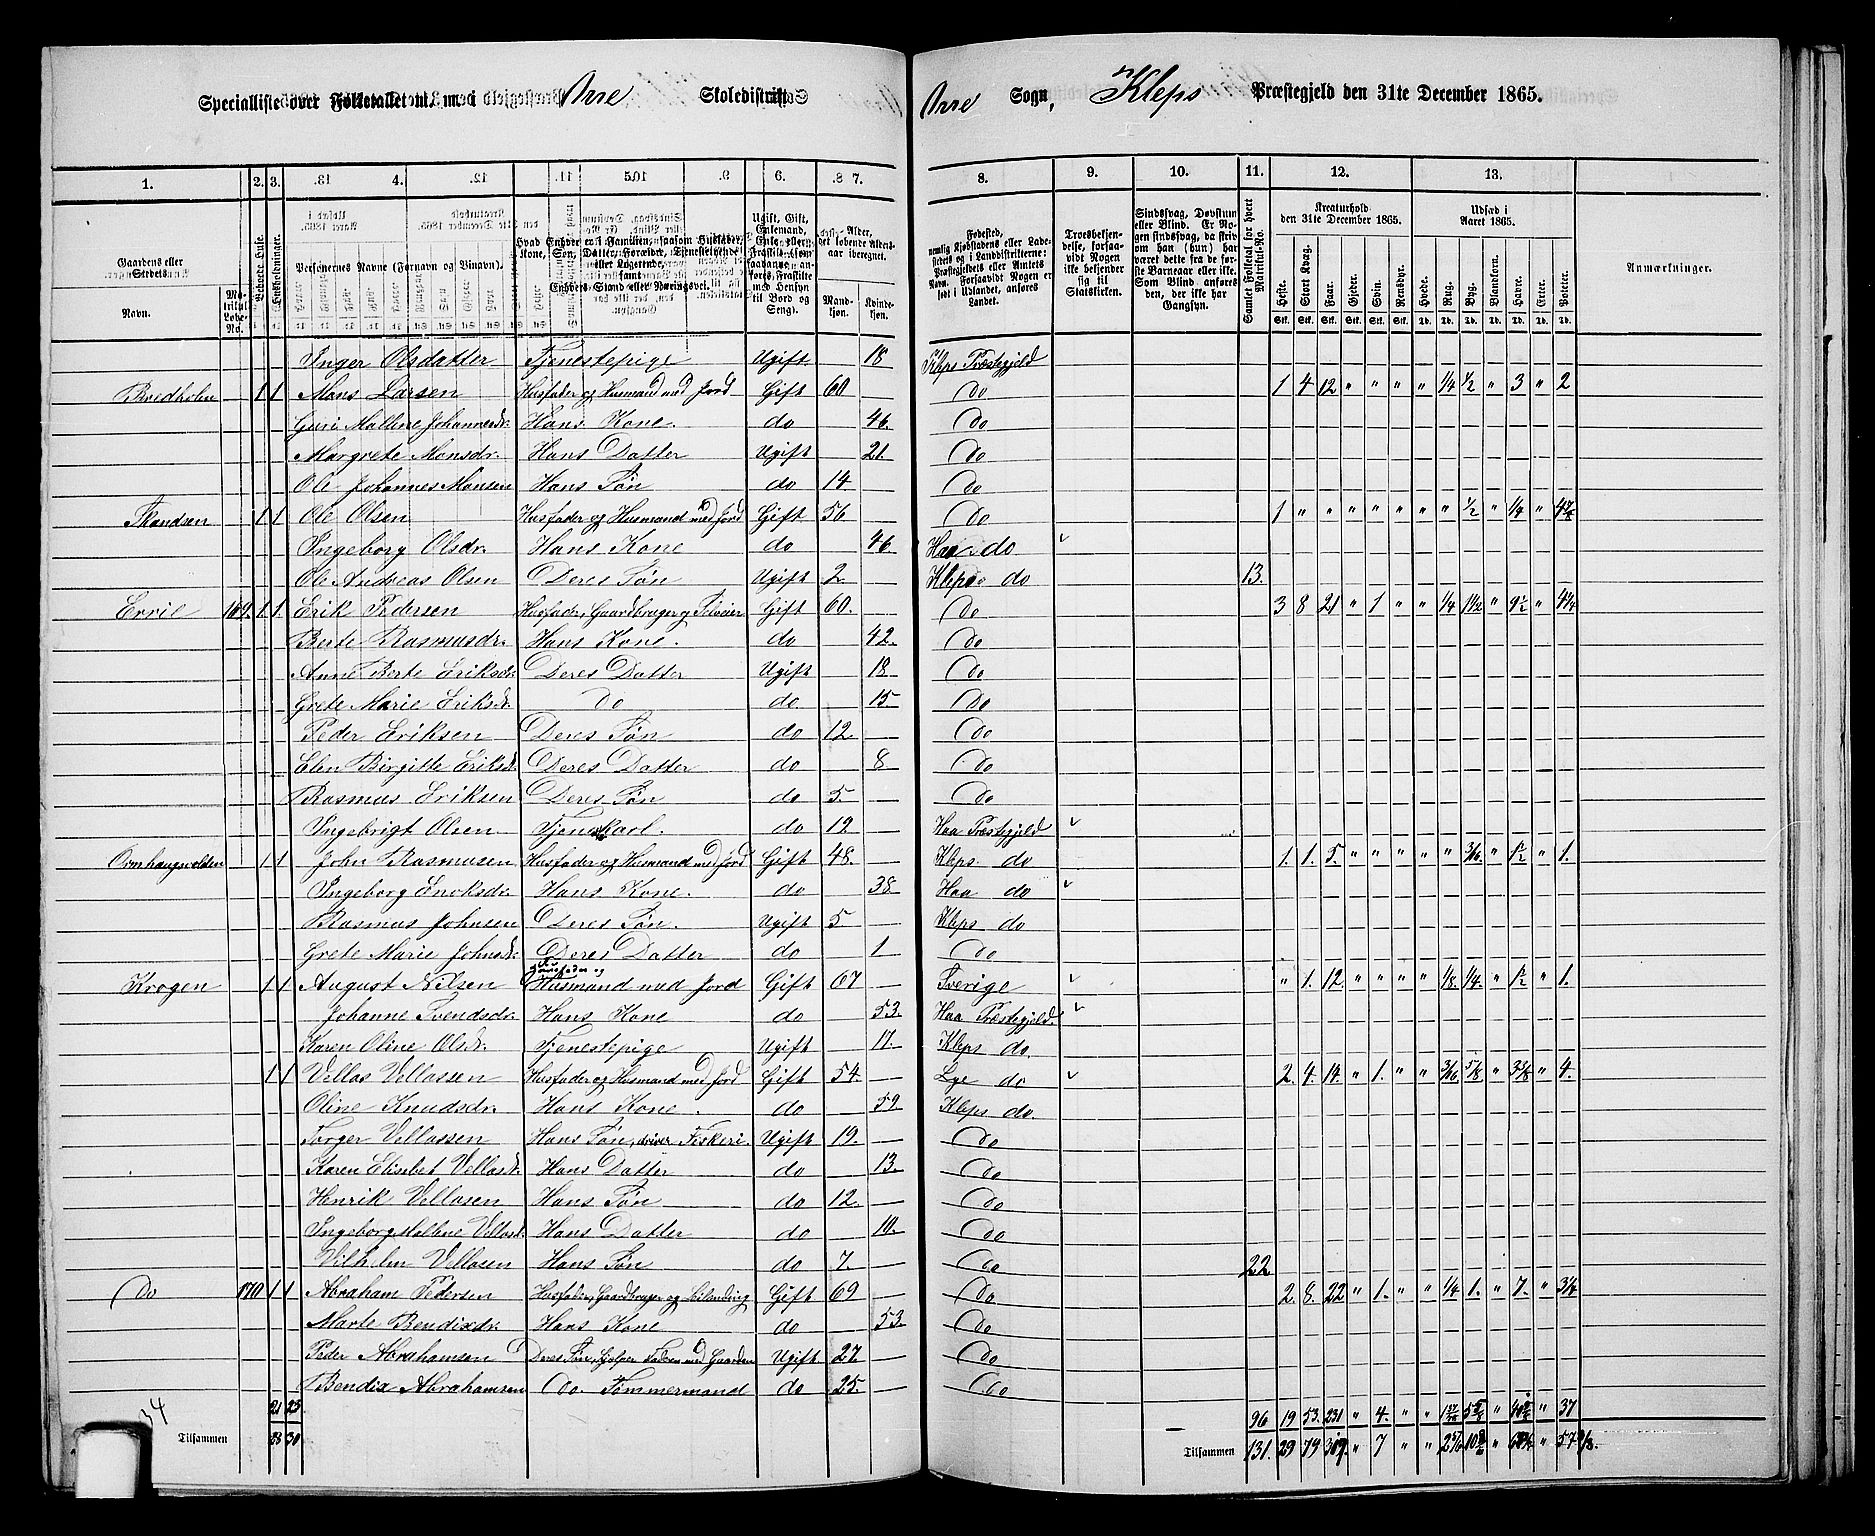 Specialliste over Folketallet m. m. i Orre Skoledistrikt
Orre Sogn, Kleps Præstegjeld den 31te December 1865.
1. 2. 3. 4. 5. 6. 7. 8. 9. 10. 11. 12. 13.
Gaardenes eller Stedets
Navn. Matrikul Løbe-No.
Beboede Huse.
Husholdninger.
Personernes Navne (Fornavn og Tilnavn).
Ugift, Gift, Enkemand, Enke eller Fraskilte
Alder, det løbende Aldersaar iberegnet.
Mandkjøn. Kvindekjøn.
Fødested,
Troesbekjendelse, forsaavidt Nogen ikke bekjender sig til Statskirken.
Sindssvag, Døvstum eller Blind.
Samlet Folketal for hvert Matrikul-No.
Kreaturhold den 31te December 1865.
Udsæd i Aaret 1865.
Anmærkninger.
Heste. Stort Kvæg. Faar. Gjeder. Svin. Rensdyr. Hvede. Rug. Byg. Blandkorn. Havre. Erter. Poteter.
Inger Olsdatter Tjenestepige Ugift 18 Kleps Præstegjeld
Bredholm 1 1 Mons Larsen Husfader og Husmand med Jord Gift 60 Do 1 4 12 " " " " 1/4 1/2 " 3 " 2
Guri Mallene Johannesdr. Hans Kone. do 46. Do
Margrete Monsdr. Hans Datter Ugift 21. Do
Ole Johannes Monsen Hans Søn do 14 Do
Skandsen 1 1 Ole Olsen Husfader og Husmand med Jord Gift 56 Do 1 " " " " " " " 1/2 " 1/4 "
Ingeborg Olsdr. Hans Kone do 46. Haa do
Ole Andreas Olsen Deres Søn Ugift 2. Kleps do 13.
Ervil 169. 1 1 Erik Pedersen Husfader, Gaardbruger og Selveier Gift 60. Do 3 8 21 " 1 " " 1/4 1 1/2 " 9 1/2 " 4 1/4
Berte Rasmusdr. Hans Kone. do 42. Do
Anne Berte Eriksdr. Deres Datter Ugift 18 Do
Grete Marie Eriksdr. Do do 15 Do
Peder Eriksen Deres Søn do 12. Do
Elen Birgitte Eriksdr. Deres Datter do 8 Do
Rasmus Eriksen Deres Søn do 5. Do
Ingebrigt Olsen Tjenskarl. do 19 Haa Præstegjeld
Ormhaugvolden 1 1 John Rasmusen Husfader og Husmand med Jord Gift 48. Kleps do 1. 1. 5. " " " " " 3/16 " 1 1/2 " 1.
Ingeborg Enoksdr. Hans Kone. do 38. Haa do
Rasmus Johnsen Deres Søn. Ugift 5. Kleps do
Grete Marie Johnsdr. Deres Datter do 1 Do
Krogen 1 1 August Nilsen Husfader og Husmand med Jord Gift 67 Sverige " 1. 12. " " " " 1/8. 1/4. " 1 1/2 " 1.
Johanne Svendsdr. Hans Kone do 53. Haa Præstegjeld.
Karen Oline Olsdr. Tjenestepige Ugift 17. Kleps do.
1 1 Vellas Vellassen Husfader og Husmand med Jord Gift 54. Lye do 2. 4. 14. " 1. " " 3/16 5/8 " 3 5/8 " 4.
Oline Knudsdr. Hans Kone. do 59. Kleps do.
Torger Vellassen Hans Søn, driver Fiskeri. Ugift 19. Do
Karen Elisbet Vellasdr. Hans Datter do 13. Do
Henrik Vellasen Hans Søn do 12. Do
Ingeborg Mallene Vellasd. Hans Datter do 10. Do
Vilhelm Vellasen Hans Søn do 7. Do 22
Do 170 1 1 Abraham Pedersen Husfader, Gaardbruger og Leilending Gift 69 Do 2. 8. 22 " 1. " " 1/4 1. " 7. " 3 1/4
Marte Bendixdr. Hans Kone do 53. Do
Peder Abrahamsen Deres Søn, hjelper Faderen med Gaarden Ugift 27. Do
Bendix Abrahamsen Do. Tømmermand do 25. Do
34 21 23 96 19 53. 231 " 4. " " " " 37
Tilsammen 28 30 Tilsammen 131. 29 79 309. " 7 " " " "